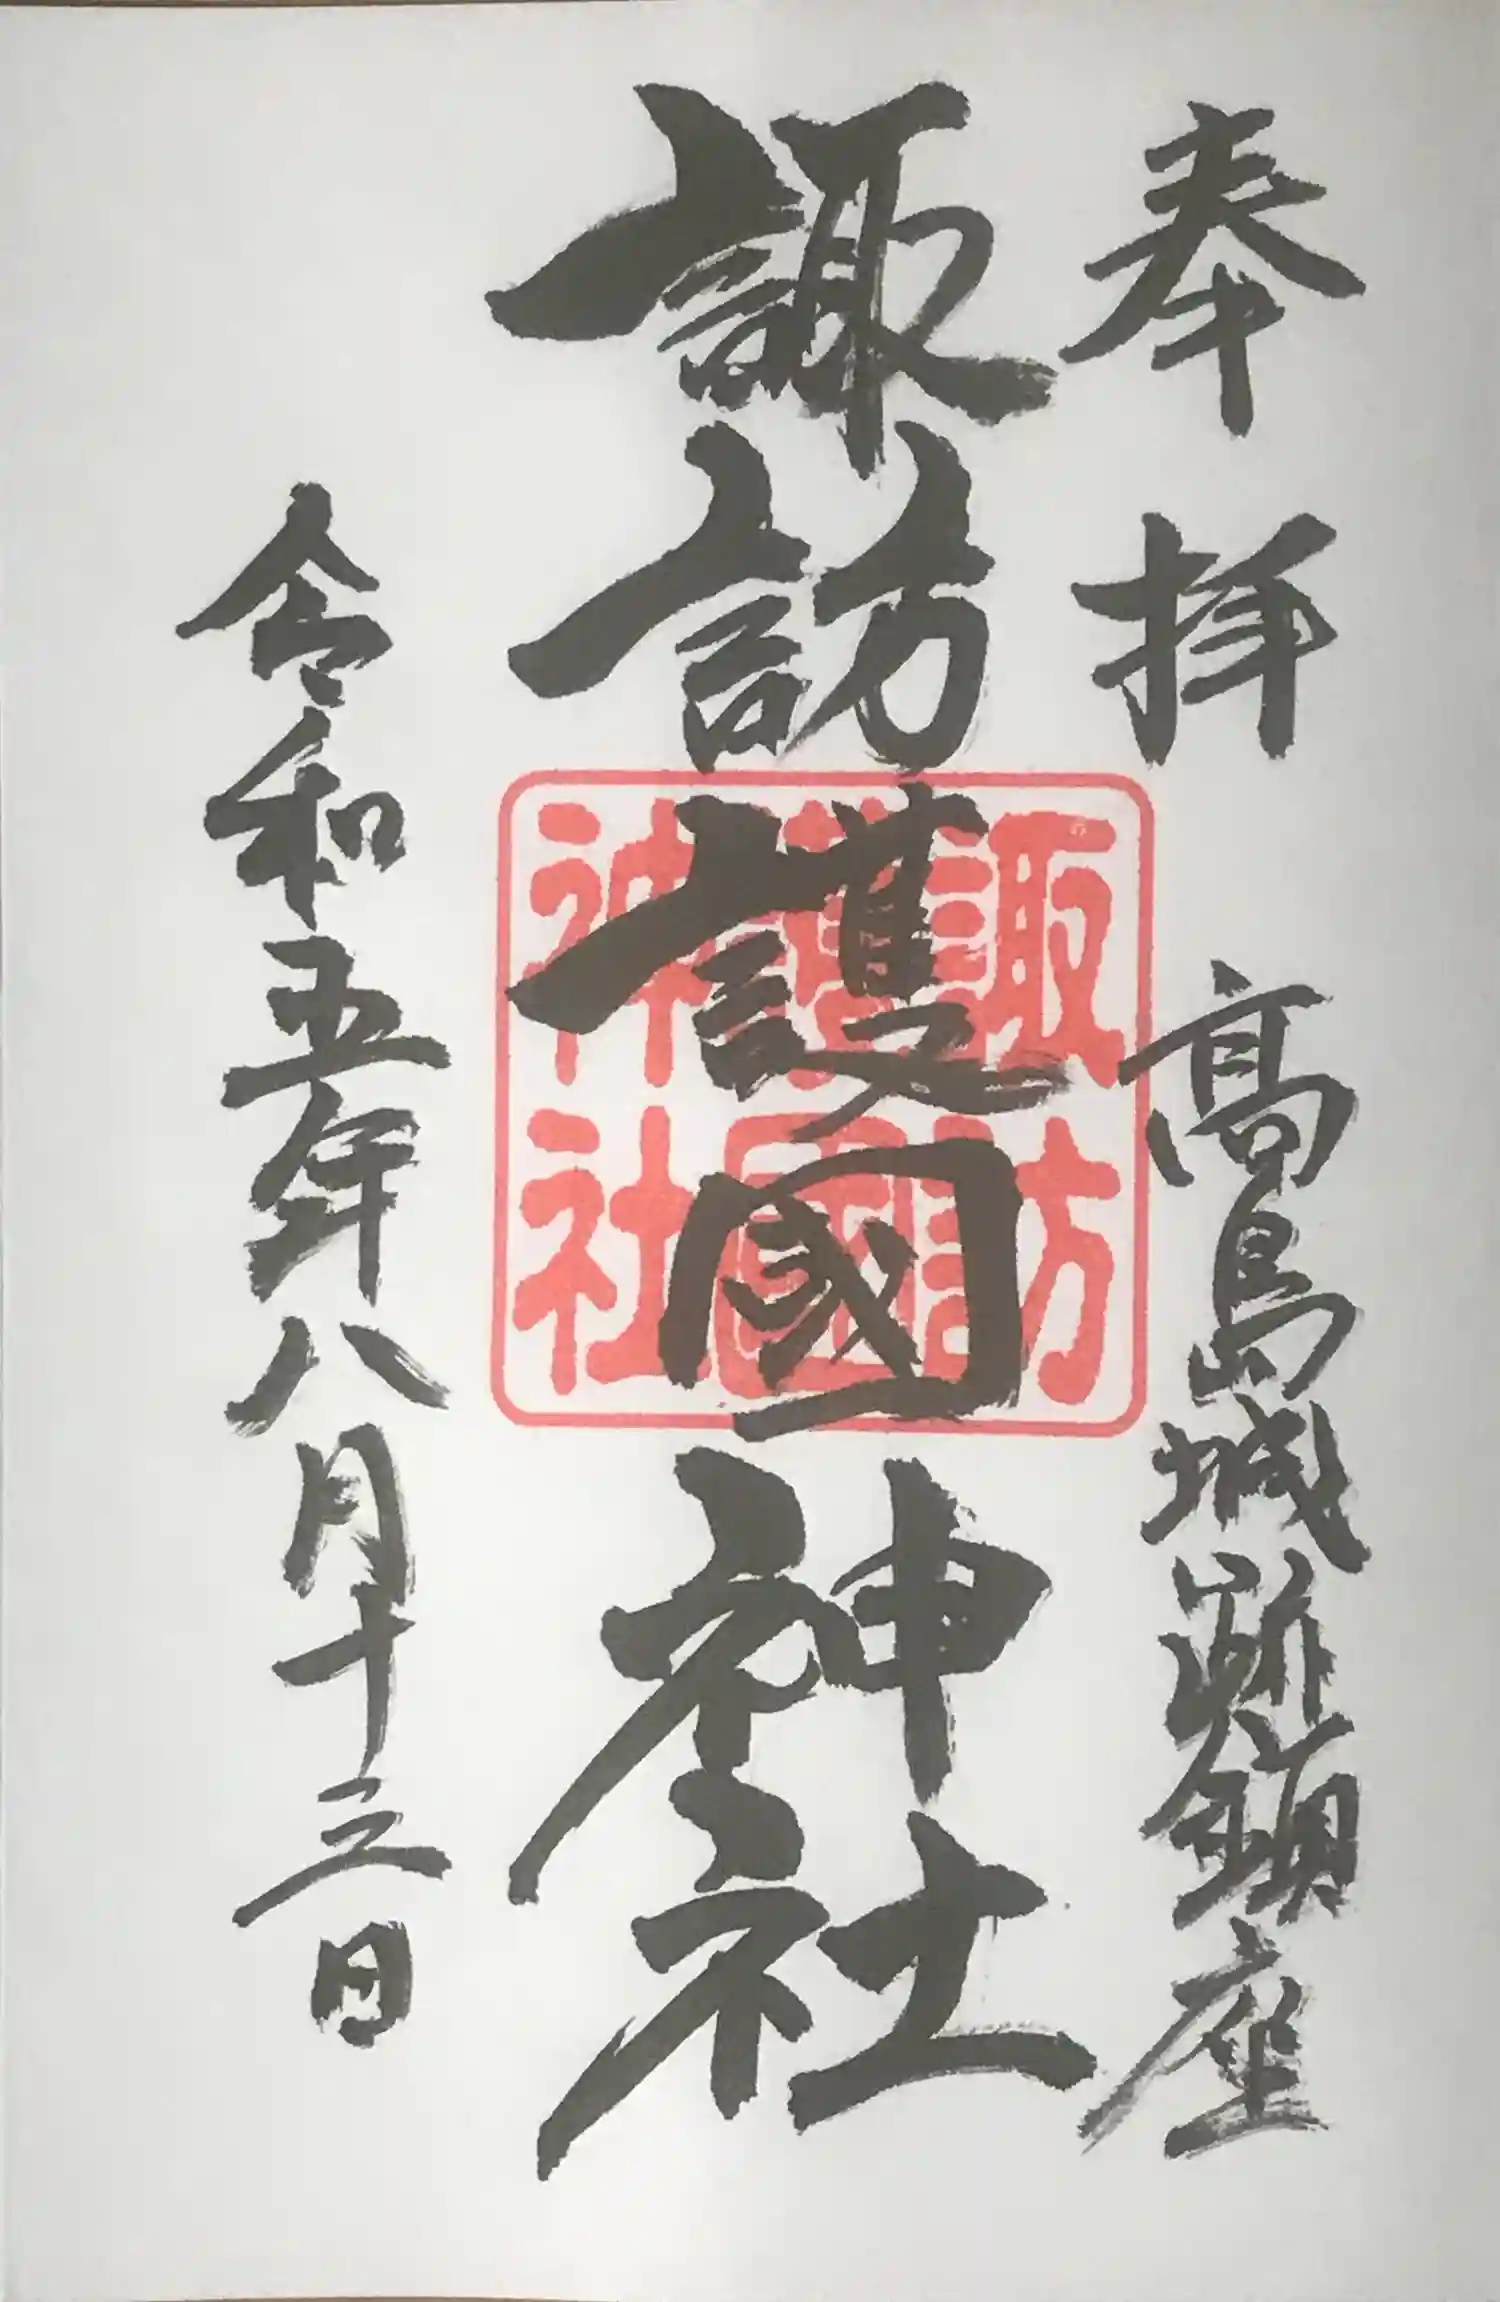 奉拝 高島城跡鎮座
諏訪護國神社
諏訪
護國
神社
令和五年八月十三日